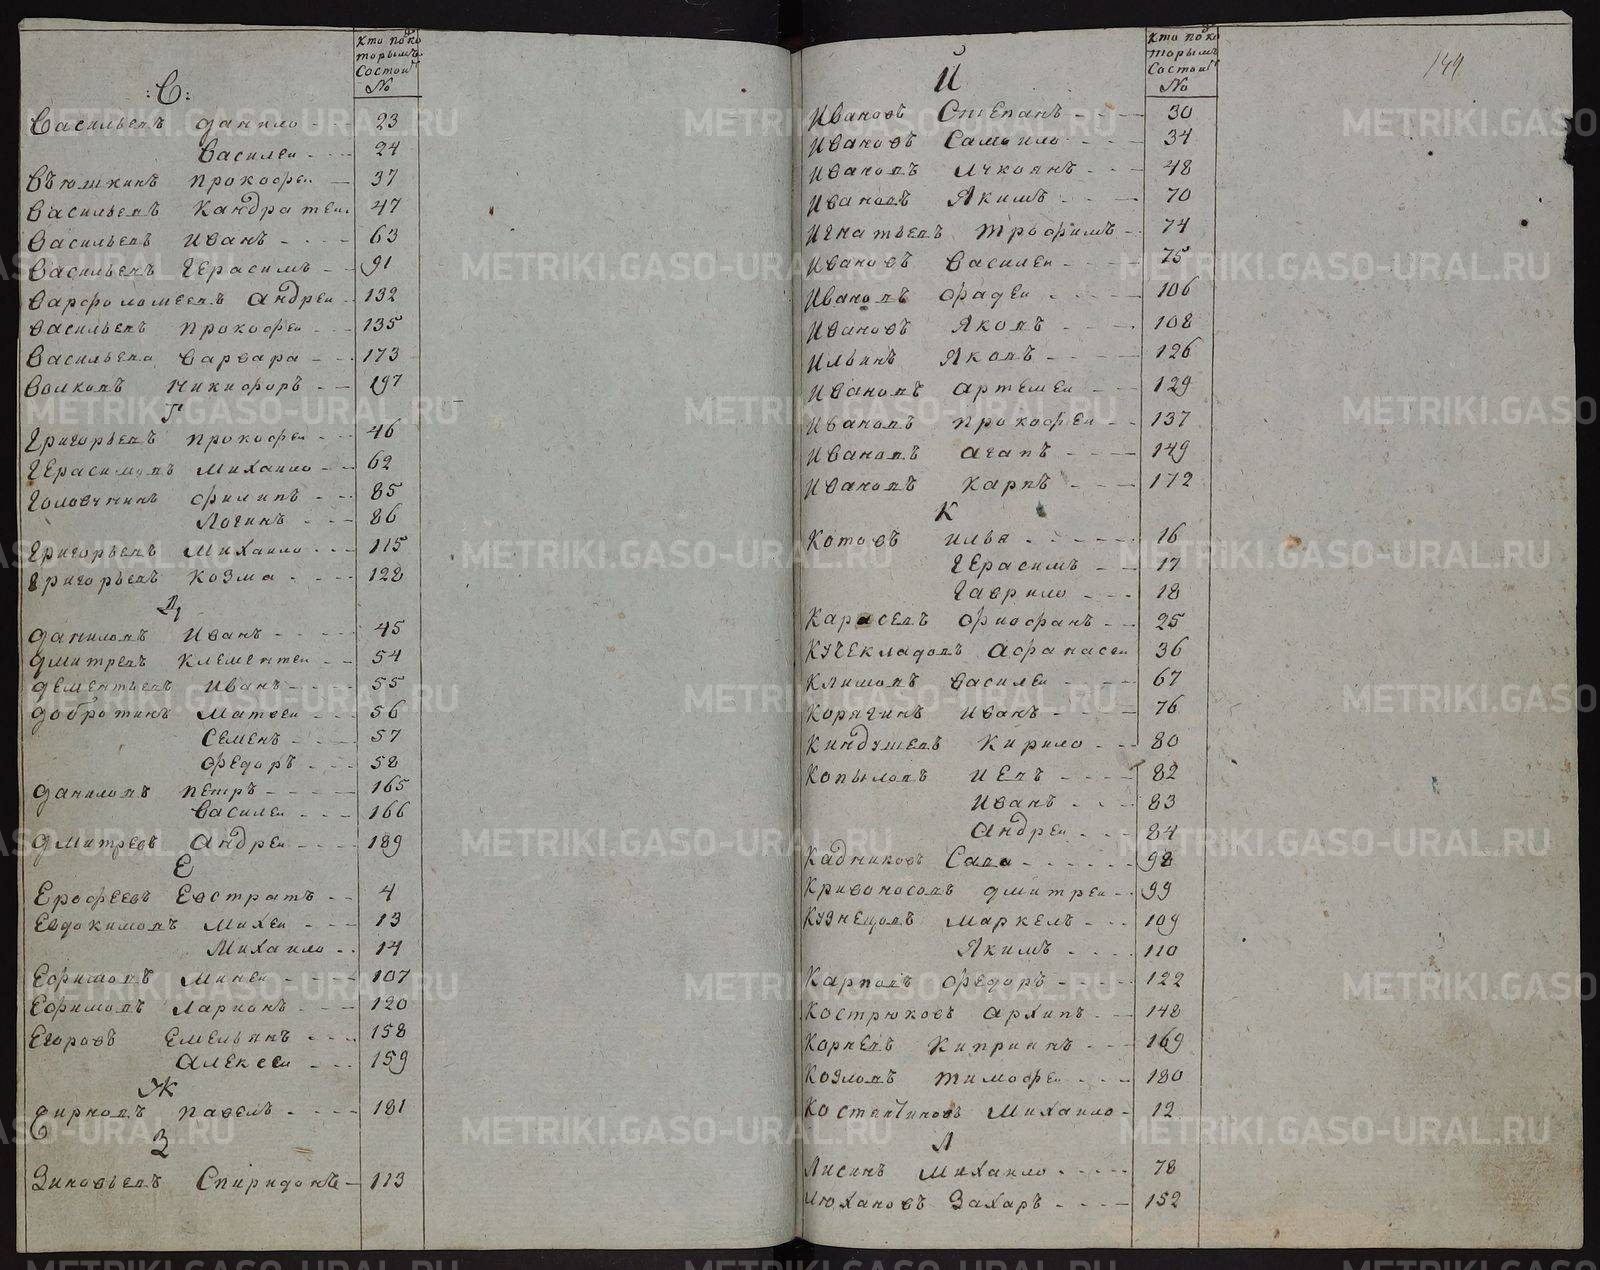 Кто по ко
торымъ
Состоитъ
№
:В:
Васильевъ данило - 23
Василеи - - - 24
Вьюшкинъ прокофеи — 37
Васильевъ Кандратеи. 47
Васильевъ Иванъ - - - - 63
Васильевъ Герасимъ - - 91
Варфоломеевъ Андреи - 132
Васильевъ прокофеи - - - 135
Васильева Варвара - - - 173
Волковъ Никифоръ - - 197
Г
Григорьевъ прокофеи - - - 46
Герасимовъ Михаило - - 62
Головунинъ филипъ - - - 85
Логинъ - - - - 86
Григорьевъ Михаило - - - 115
Григорьевъ Козма - - - - 128
Д
даниловъ Иванъ - - - - 45
дмитревъ Клементеи - - 54
дементьевъ Иванъ - - - - 55
добротинъ Матвеи - - - 56
Семенъ - - - - 57
Федоръ - - - 58
даниловъ петръ - - - - - 165
Василеи - - - 166
дмитревъ Андреи - - - - 189
Е
Ерофеевъ Евстратъ - - 4
Евдокимовъ Михеи - - - 13
Михаило - - 14
Ефимовъ Минеи - - - - 107
Ефимовъ Ларионъ - - - 120
Егоровъ Емельянъ - - - 158
Алексеи - - - 159
Ж
Жирновъ павелъ - - - - 181
З
Зиновьевъ Спиридонъ - 113
Кто по ко
торымъ
Состоитъ
№
144
И
Ивановъ Степанъ - - - - 30
Ивановъ Самоило - - - 34
Ивановъ Лукоянъ - - - 48
Ивановъ Якимъ - - - - 70
Игнатьевъ Трофимъ - 74
Ивановъ Василеи - - - - 75
Ивановъ Фадеи - - - - 106
Ивановъ Яковъ - - - - 108
Ильинъ Яковъ - - - - 126
Ивановъ Артемеи - - - 129
Ивановъ прокофеи - - 137
Ивановъ Агапъ - - - - 149
Ивановъ Карпъ - - - - 172
К
Котовъ Илья - - - - - - 16
Герасимъ - - 17
Гаврило - - - 18
Карасевъ Фиофанъ - - 25
Кучекладовъ Афанасеи 36
Климовъ Василеи - - - - 67
Корягинъ Иванъ - - - - 76
Киндушевъ Кирило - - 80
Копыловъ Иевъ - - - - 82
Иванъ - - - 83
Андреи - - - 84
Кадниковъ Сава - - - - - - 98
Кривоносовъ дмитреи - - 99
Кузнецовъ Маркелъ - - - 109
Якимъ - - - - 110
Карповъ Федоръ - - - - - 122
Кострюковъ Архипъ - - - 148
Корневъ Киприянъ - - - 169
Козловъ Тимофеи - - - - 180
Костентиновъ Михаило - 12
Л
Лисинъ Михаило - - - - - 78
Люхановъ Захаръ - - - - 152